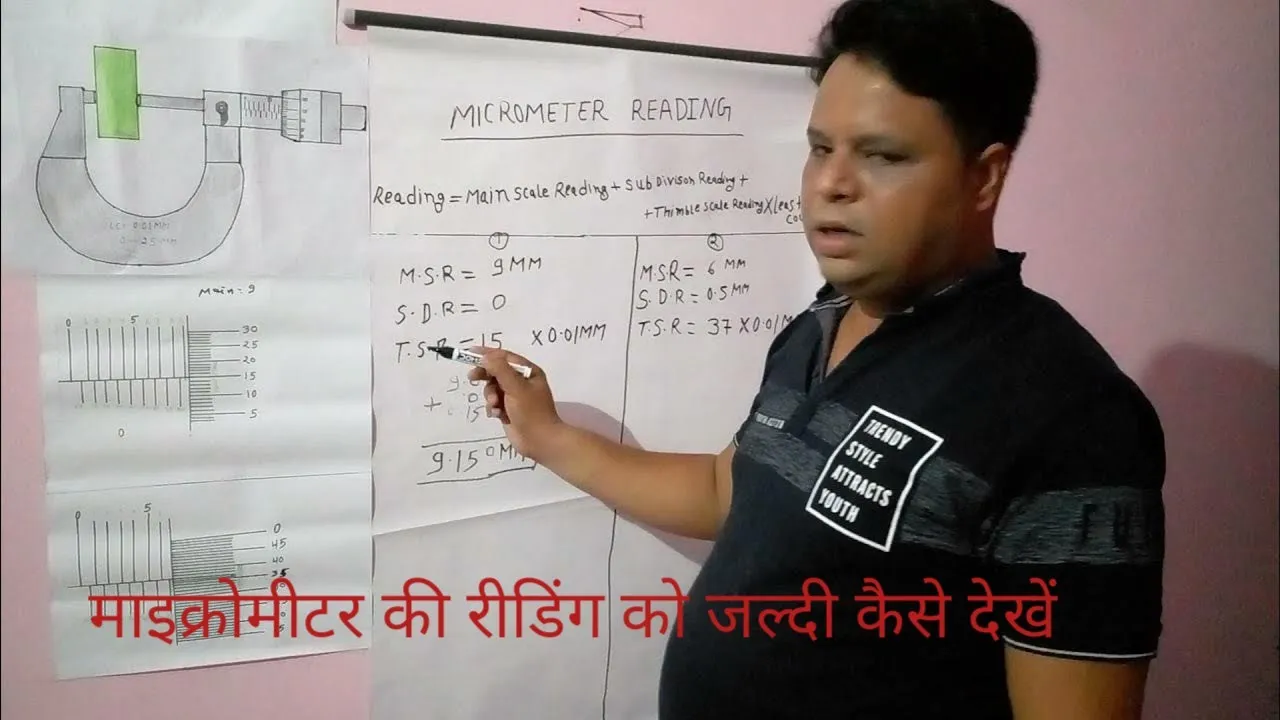 MICROMETER READING
Reading = Main Scale Reading + Sub Divison Reading +
+ Thimble Scale Reading X Least
①
M.S.R = 9 MM
S.D.R = 0
T.S.R = 15 X 0.01MM
+
9.150MM
②
M.S.R = 6 MM
S.D.R = 0.5 MM
T.S.R = 37 X 0.01
0-25 MM
Main = 9
0 5
30
25
20
15
10
5
0
0 5
0
45
40
35
TRENDY
STYLE
ATTRACTS
YOUTH
माइक्रोमीटर की रीडिंग को जल्दी कैसे देखें